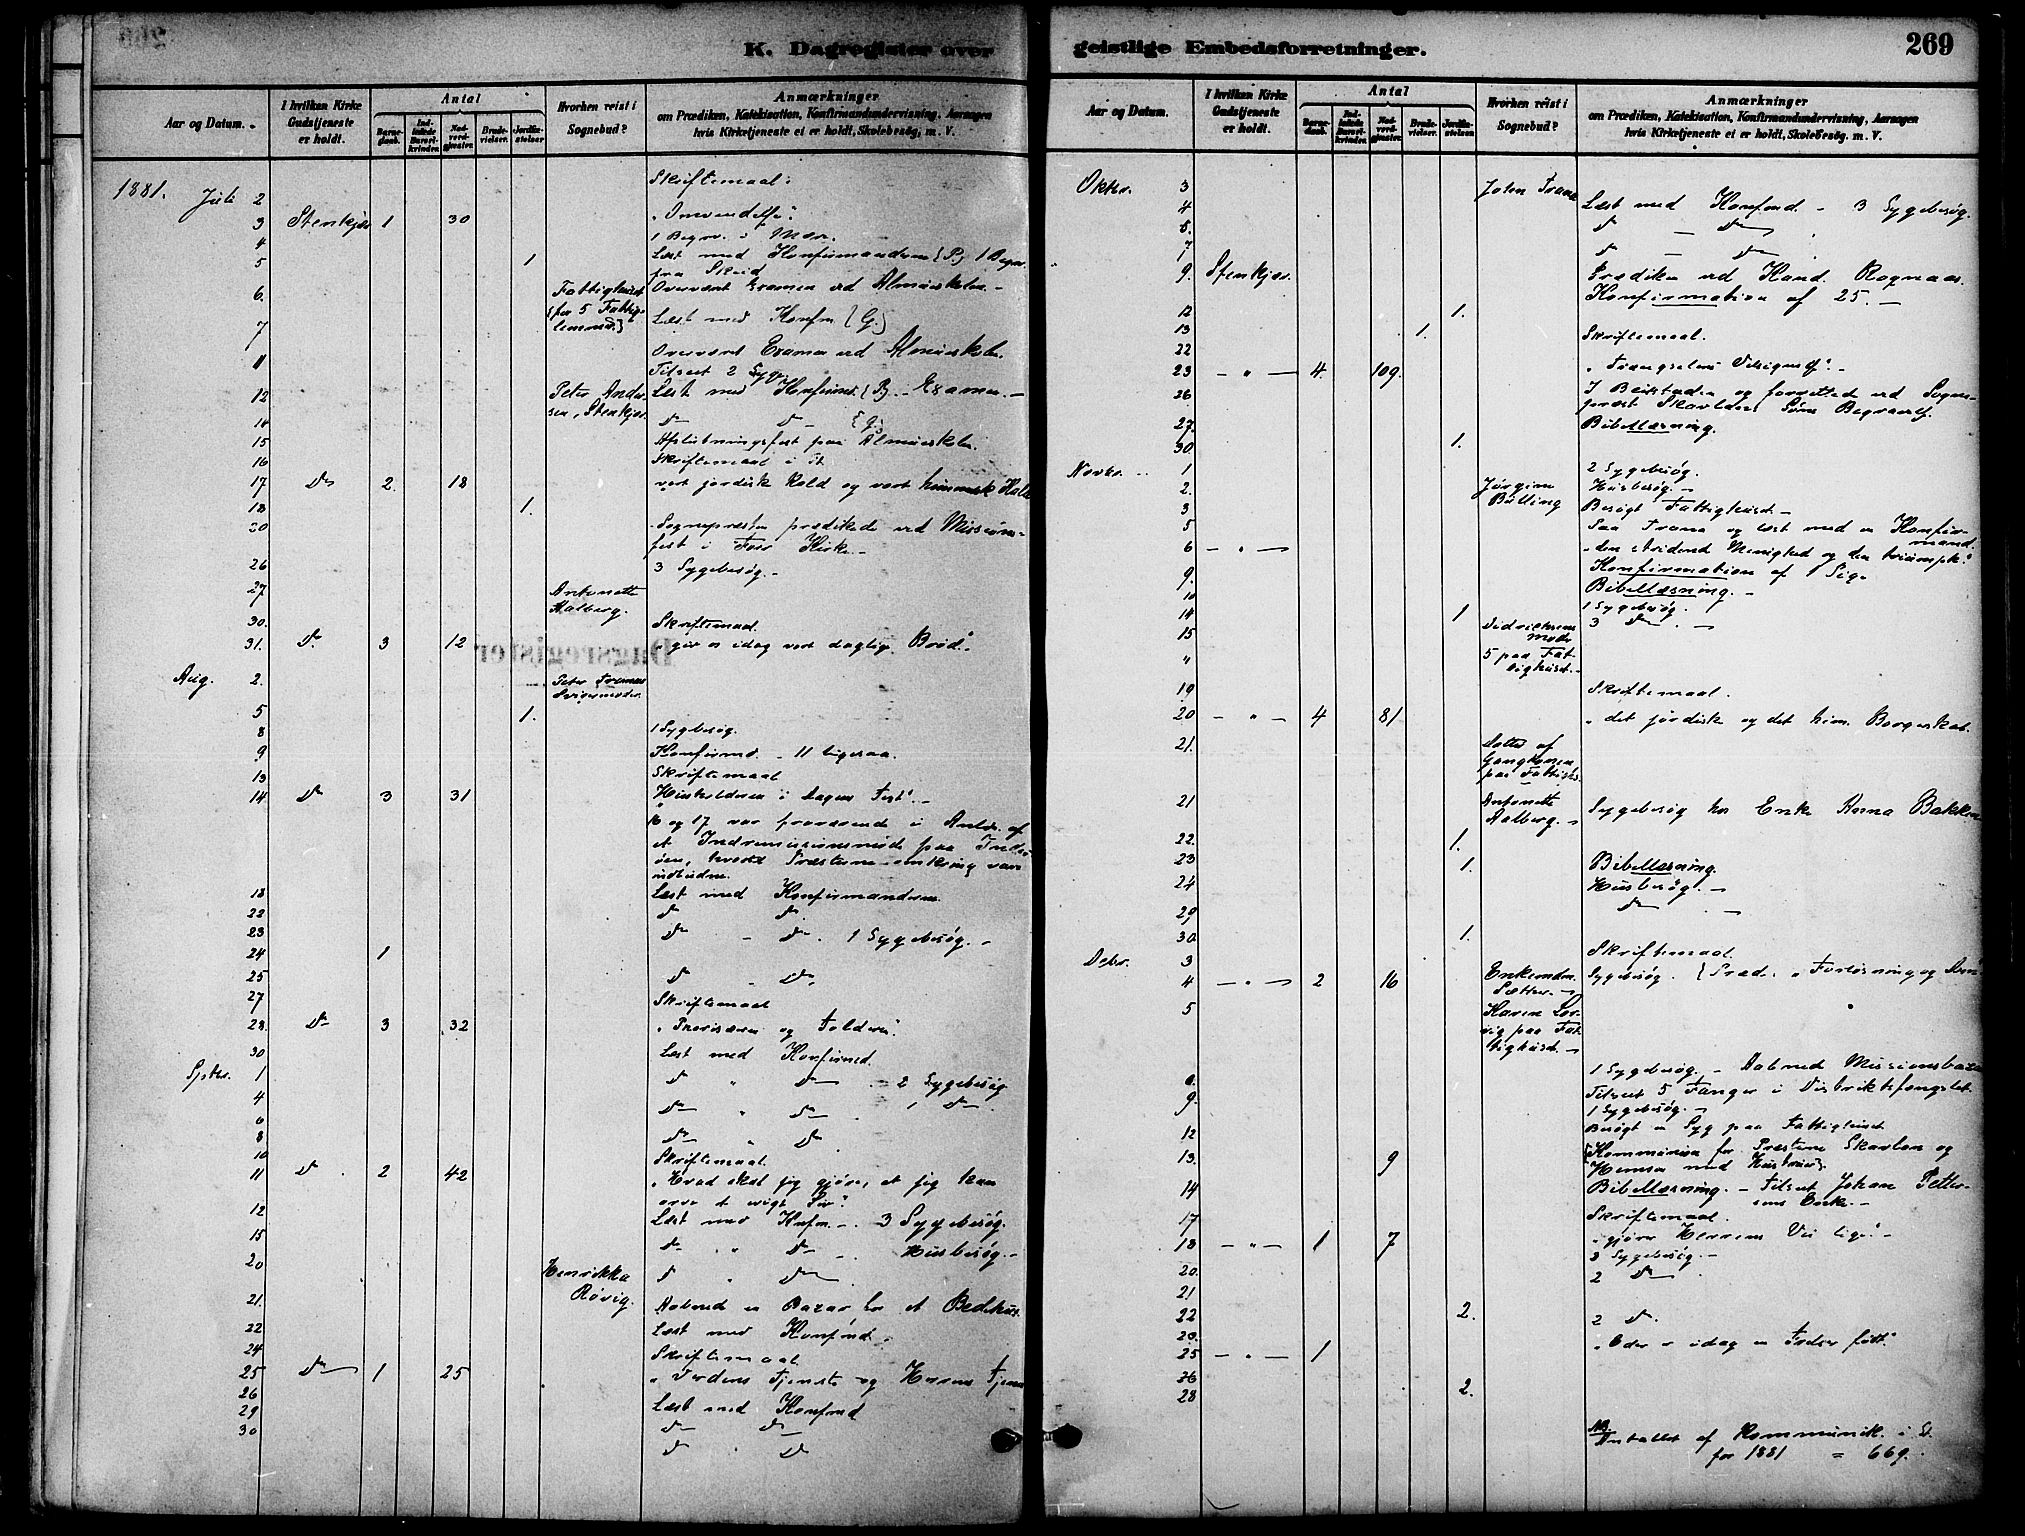 K. Dagregister over
Aar og Datum.
I hvilken Kirke Gudstjeneste er holdt.
Antal
Barnedaab.
Indledede Barselkvinder.
Nadverdgjæster.
Brudevielser.
Jordfæstelser
Hvorhen reist i Sognebud?
Anmærkninger
om Prædiken, Katekisation, Konfirmandundervisning, Aarsagen
hvis Kirketjeneste ei er holdt, Skolebesøg, m. V.
1881. Juli 2 Skriftemaal.
3 Stenkjær 1 30 "Omvendelse".
4 1 Begr. i Mær.
5 1 Læst med Konfirmanderne (P.) 1 Begr.
fra Skeid
6. Fattighuset Overvært Examen ved Almueskolen. -
(for 5 Fattige-
7 lemmer.) Læst med Konfm (G.)
11 Overvært Examen ved Almueskolen.
Tilseet 2 Syge
12 Peter Ander- Læst med Konfirmd. (P.) - Examen. -
sen, Stenkjær.
14 Do Do (G.)
15 Afslutningsfest paa Almueskolen.
16 Skriftemaal i St.
17 Do 2. 18 vort jordisk Kald og vort himmelsk Kald
18 1.
20 Sognepræsten prædikede ved Missions-
fest i Foss Kirke. -
26 3 Sygebesøg. -
27 Antonette
Aalberg.
30. Skriftemaal.
31. Do 3 12 "giv os idag vort daglige Brød."
Aug. 2. Peter Tranas
Svigermoder.
5 1.
8 1 Sygebesøg.
9 Konfirmd. - 11 ligesaa.
13 Skriftemaal
14. Do 3 31 "Husholderen i Dagens Text". -
16 og 17 var fraværende i Anledn. af
et Indremissionsmøde paa Inder-
øen, hvortil Præsterne omkring vare
indbudne.
18 Læst med Konfirmanderne.
22 Do Do
23 Do - Do. 1 Sygebesøg. -
24 1
25 Do - Do
27 Skriftemaal
28. Do 3 32 "Farisæeren og Tolderen".
30 Læst med Konfirmd.
Septbr. 1 Do " Do - 2 Sygebesøg
4 Do " Do 1 Do
6 Do " Do
8
10 Skriftemaal.
11 Do 2 42 "Hvad skal jeg gjøre, at jeg kan
arve et evigt Liv".
12 Læst med Konfm. - 3 Sygebesøg.
15 Do " Do - Husbesøg. -
20 Henrikka Do " Do
Røvig.
21. Aabnede en Bazar for et Bedehus.
22 Læst med Konfmd.
24 Skriftemaal.
25 Do 1 25 "Verdens Tjeneste og Herrens Tjen
26 Læst med Konfmd
29 Do Do
30 Do " Do
geistlige Embedsforretninger.
269
Aar og Datum.
I hvilken Kirke Gudstjeneste er holdt.
Antal
Barnedaab.
Indledede Barselkvinder.
Nadverdgjæster.
Brudevielser.
Jordfæstelser
Hvorhen reist i Sognebud?
Anmærkninger
om Prædiken, Katekisation, Konfirmandundervisning, Aarsagen
hvis Kirketjeneste ei er holdt, Skolebesøg, m. V.
Oktbr. 3 John Trana
4 Læst med Konfmd. - 3 Sygebesøg.
5. Do - Do
7 Do - Do
9. Stenkjær. Prædiken ved Kand. Rognaas.
Konfirmation af 25. -
12 1.
13 1.
22 Skriftemaal.
23 - " - 4. 109. "Trængselens Velsignelse". -
26 I Beitstaden og forrettede ved Sogne-
præst Skavlans Søns Begravelse.
27. Bibellæsning.
30. 1.
Novbr. 1 2 Sygebesøg.
2. Jørgine Husbesøg. -
3 Bølling Besøgt Fattighuset. -
5 Paa Trana og læst med en Konfir-
mand.
6 - " - "den stridende Menighed og den triumph."
Konfirmation af 1 Pige
9. Bibellæsning. -
10 1 Sygebesøg.
14 1 3 Do. -
15 Didriksens
Moder
" 5 paa Fat-
tighuset. -
19 Skriftemaal.
20 - " - 4 81 "det jordiske og det him. Borgerskab.
21. Datter af
Gangkonen
paa Fattighs.
21 Antonette Sygebesøg hos Enke Anna Bakken
Aalberg. -
22. 1.
23 1. Bibellæsning.
24 Husbesøg. -
29 Do -
30. 1.
Debr. 3 Skriftemaal.
4 - " - 2 16 Enkemdm. Sygebesøg. (Præd. "Forløsning og Dom"
Sætter. -
5 Karen Lor-
vig paa Fat-
tighuset. -
8. 1 Sygebesøg. - Aabned Missionsbazar
9. Tilseet 5 Fanger i Distriktsfængslet.
1 Sygebesøg. -
12 Besøgt en Syg paa Fattighuset
13. 9 (Kommunion for Præsterne Skavlan og
Hansen med Hustruer).
14 Bibellæsning. - Tilseet Johan Petter-
sens Enke. -
17 Skriftemaal.
18 - " - 1 7 "gjører Herrens Vei lige". -
3 Sygebesøg. -
20. 2 Do
21
22 2. 2 Do.
23.
25 - " - 1 "Eder er idag en Frelser født."
26
28 2.
NB.
Antallet af Kommunik. i St.
for 1881 = 669.